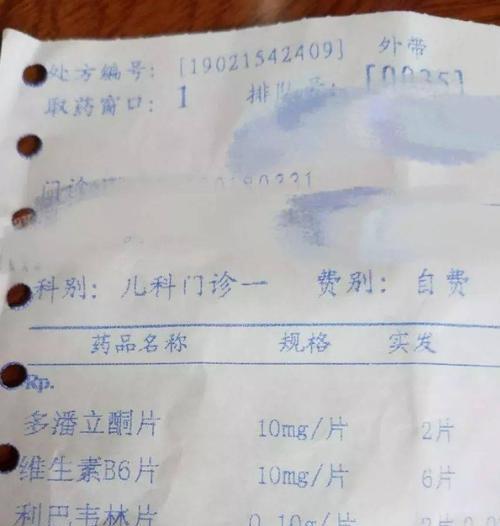 处方编号: [19021542409] 外带
取药窗口: 1 排队号: [0035]
门诊
科别: 儿科门诊一 费别: 自费
药品名称 规格 实发
Rp.
多潘立酮片 10mg/片 2片
维生素B6片 10mg/片 6片
利巴韦林片 0.10g/片